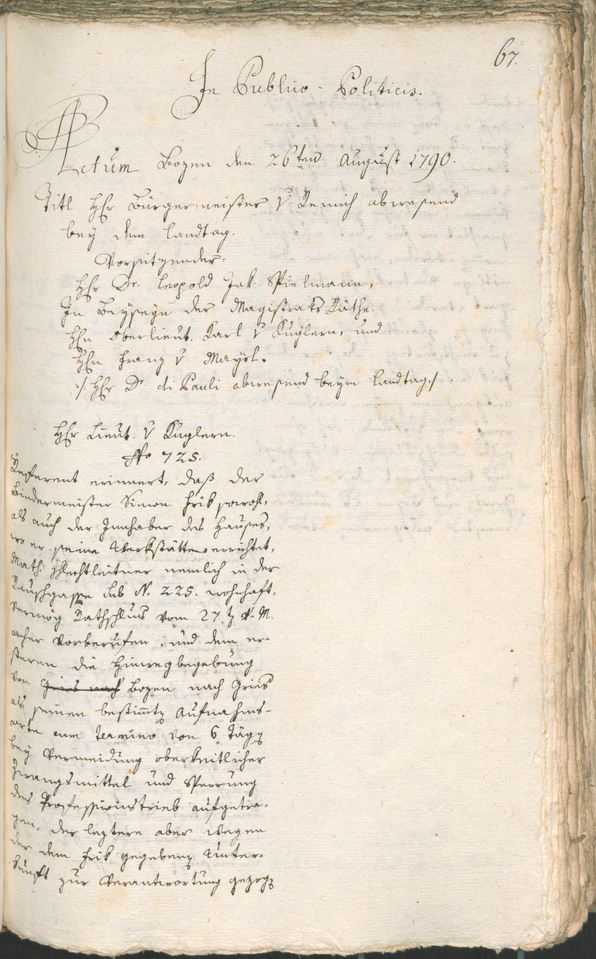 67.
In Publico-Politicis.
Actum Bozen den 26ten August 1790.
Titl Hhr Bürgermeister v Remich abwesend
bey dem Landtag.
Vorsitzender.
Hhr Dr. Leopold Jak. Spielmann,
In Beyseyn der Magistrats Räthe
Hhn Oberlieut. Karl v Kuglern, und
Hhn Franz v Mayrl.
./. Hhr Dr di Pauli abwesend beym Landtag ./.
Hhr Lieut. v Kuglern.
No 725.
Referent erinnert, daß der
Bindermeister Simon Frik sowohl,
als auch der Innhaber des Hauses,
wo er seine Werkstätte errichtet,
Math. Schlechtleitner nemlich in der
Rauschgasse sub N. 225. wohnhaft,
vermög Rathschluß vom 27 v. M.
vorberufen, und dem er-
steren die Hinwegbegebung
von Gries nach Bozen nach Gries
als seinen bestimmten Aufnahms-
orte cum termino von 6 Tägen
bey Vermeidung oberkeitlicher
Zwangsmittel und Sperrung
des Professionstrieb aufgetra-
gen, der leztere aber wegen
der dem Frik gegebenen Unter-
kunft zur Verantwortung gezogen